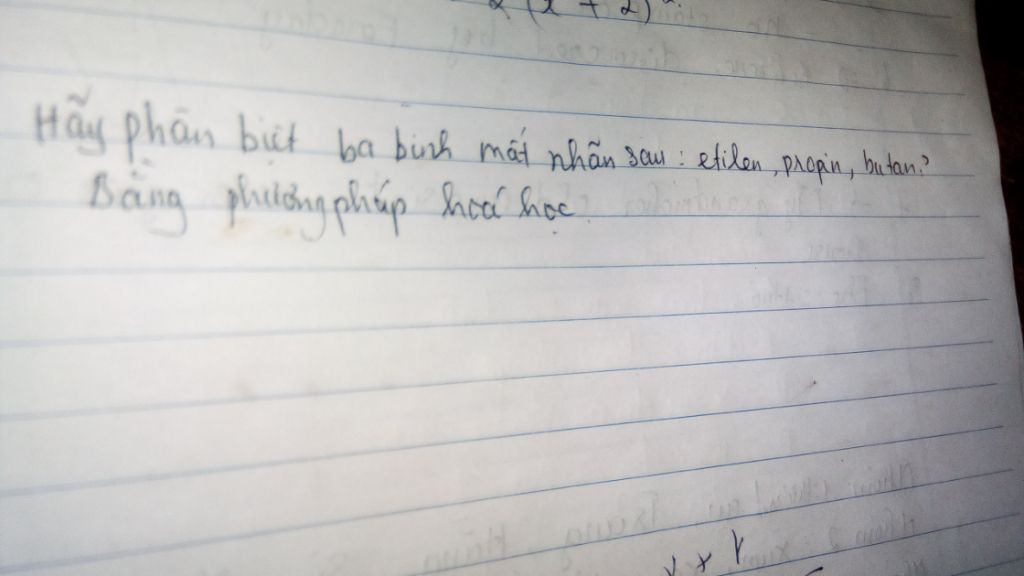 2 (x + 2)
Hãy phân biệt ba bình mất nhãn sau: etilen, propin, butan?
Bằng phương pháp hoá học.